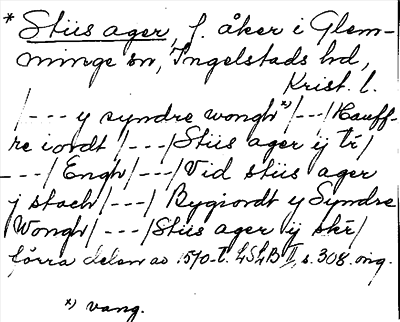 * Stiis ager, f. åker i Glem-
minge sn, Ingelstads hd,
Krist. l.
/--- y syndre wongh*)/---/Hauff-
re iordt /---/Stiis ager ij tr/
---/Engh/---/Vid stiis ager
j stach/---/ Bygiordt y Syndre
Wongh/---/Stiis ager ij skr/
förra delen av 1570-t. LSLB II, s. 308. orig.
*) vang.